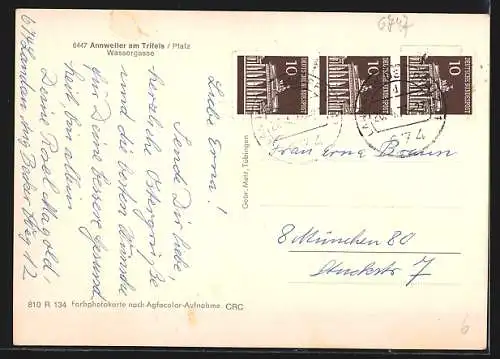 6747
6447 Annweiler am Trifels / Pfalz
Wassergasse
Liebe Erna!
Sende Dir liebe,
herzliche Ostergrüße
und die besten Wünsche
für Deine bessere Gesund
heit, bin allein
Deine Rosel Magold,
674 Landau, Weg 12
10 DEUTSCHE BUNDESPOST
10 DEUTSCHE BUNDESPOST
10 DEUTSCHE BUNDESPOST
Frau Erna Braun
8 München 80
Stuckstr 7
Gebr. Metz, Tübingen
810 R 134 Farbphotokarte nach Agfacolor-Aufnahme CRC
6